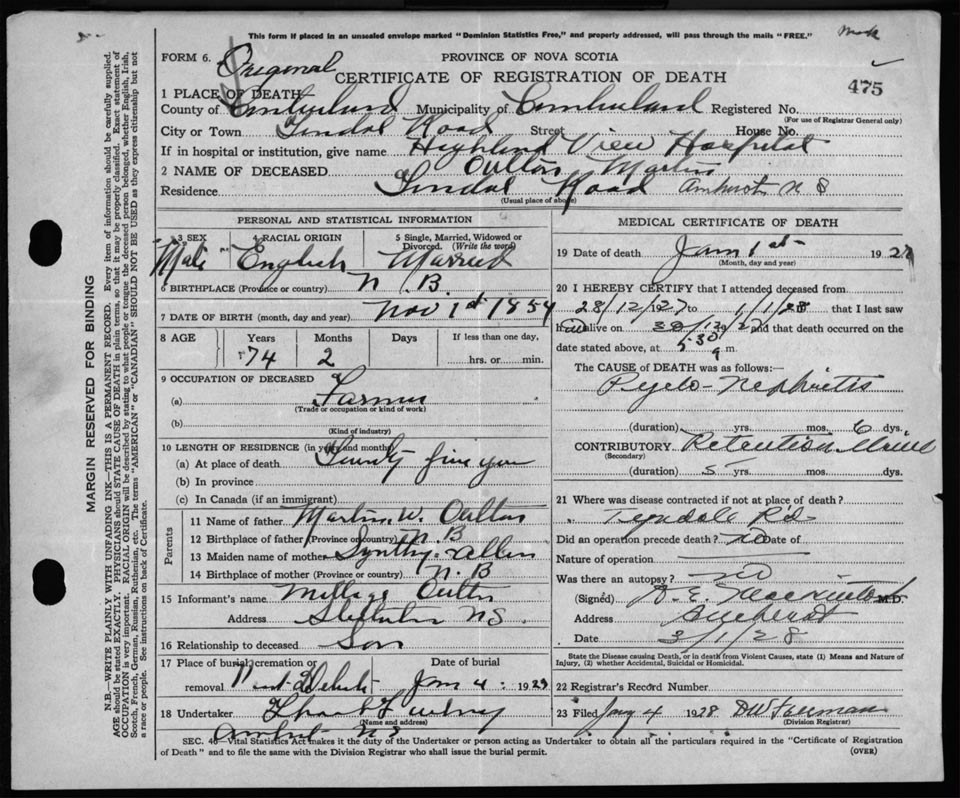 This form if placed in an unsealed envelope marked "Dominion Statistics Free," and properly addressed, will pass through the mails "FREE."
FORM 6. Original PROVINCE OF NOVA SCOTIA
CERTIFICATE OF REGISTRATION OF DEATH
475
1 PLACE OF DEATH
County of Cumberland Municipality of Cumberland Registered No.
(For use of Registrar General only)
City or Town Road Street House No.
If in hospital or institution, give name Highland View Hospital
2 NAME OF DECEASED Oulton Martin
Residence Road Amherst N S
(Usual place of abode)
PERSONAL AND STATISTICAL INFORMATION
3 SEX 4 RACIAL ORIGIN 5 Single, Married, Widowed or Divorced. (Write the word)
Male English Married
6 BIRTHPLACE (Province or country) N.B.
7 DATE OF BIRTH (month, day and year) Nov 1st 1854
8 AGE Years Months Days If less than one day,
74 2 hrs. or min.
9 OCCUPATION OF DECEASED
(a) Farmer
(Trade or occupation or kind of work)
(b)
(Kind of industry)
10 LENGTH OF RESIDENCE (in years and months)
(a) At place of death five
(b) In province
(c) In Canada (if an immigrant)
Parents
11 Name of father Martin W. Oulton
12 Birthplace of father (Province or country) N.B
13 Maiden name of mother Allen
14 Birthplace of mother (Province or country) N.B
15 Informant's name Oulton
Address N.S.
16 Relationship to deceased Son
17 Place of burial, cremation or removal Date of burial
Jan 4 1928
18 Undertaker
(Name and address)
Amherst N S
MEDICAL CERTIFICATE OF DEATH
19 Date of death Jan 1st 1928
(Month, day and year)
20 I HEREBY CERTIFY that I attended deceased from
28/12/1927 to 1/1/28 that I last saw
h alive on and that death occurred on the
date stated above, at 5 30 m.
The CAUSE of DEATH was as follows:
Pyelo-Nephritis
(duration) yrs. mos. 6 dys.
CONTRIBUTORY Retention Urine
(Secondary)
(duration) yrs. mos. dys.
21 Where was disease contracted if not at place of death?
Tyndale Rd
Did an operation precede death? no Date of
Nature of operation
Was there an autopsy? no
(Signed) M.D.
Address Amherst
Date 3/1/28
State the Disease causing Death, or in death from Violent Causes, state (1) Means and Nature of Injury, (2) whether Accidental, Suicidal or Homicidal.
22 Registrar's Record Number
23 Filed Jany 4 1928
(Division Registrar)
SEC. 40—Vital Statistics Act makes it the duty of the Undertaker or person acting as Undertaker to obtain all the particulars required in the "Certificate of Registration
of Death" and to file the same with the Division Registrar who shall issue the burial permit. (OVER)
MARGIN RESERVED FOR BINDING
N.B.—WRITE PLAINLY WITH UNFADING INK—THIS IS A PERMANENT RECORD. Every item of information should be carefully supplied.
AGE should be stated EXACTLY. PHYSICIANS should STATE CAUSE OF DEATH in plain terms, so that it may be properly classified. Exact statement of
OCCUPATION is very important. RACIAL ORIGIN will be described by stating to what people or tongue the deceased person belonged, whether English, Irish,
Scotch, French, German, Russian, Ruthenian, etc. The terms "AMERICAN" or "CANADIAN" SHOULD NOT BE USED as they express citizenship but not
a race or people. See instructions on back of Certificate.